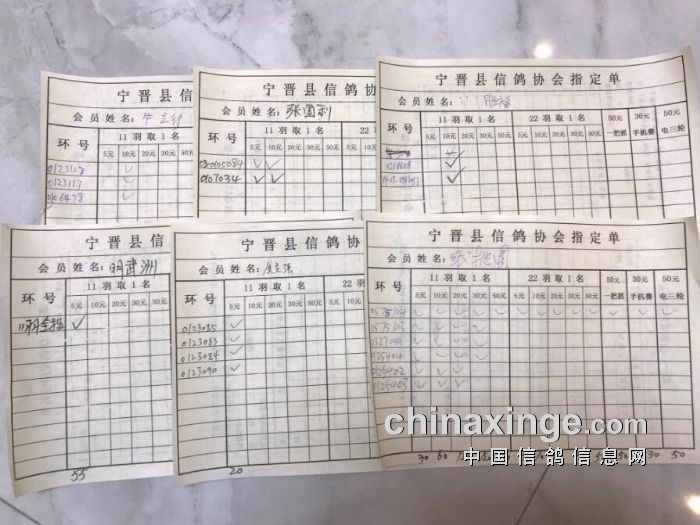 宁晋县信鸽协
会员姓名:
环号 11羽取1名
5元 10元 20元 30元 50元
0123117
0106478
宁晋县信鸽协
会员姓名: 张国利
环号 11羽取1名 22
5元 10元 20元 30元 50元 10元
0105084
0107034
宁晋县信鸽协会指定单
会员姓名:
环号 11羽取1名 22羽取1名 50元 30元 50元
5元 10元 20元 30元 50元 10元 20元 30元 50元 一把抓 手机赛 电三轮
宁晋县信
会员姓名: 明武洲
环号 11羽取1名
5元 10元 20元 30元
55
宁晋县信鸽协
会员姓名:
环号 11羽取1名 22羽
5元 10元 20元 30元 50元 10元
0123085
0123083
0123084
0123090
20
宁晋县信鸽协会指定单
会员姓名:
环号 11羽取1名 22羽取1名 50元 30元 50元
5元 10元 20元 30元 50元 10元 20元 30元 50元 一把抓 手机赛 电三轮
0575104
0575103
0127044
0125404
0125402
0125405
30 60 50 30 50
chinaxinge.com
中国信鸽信息网